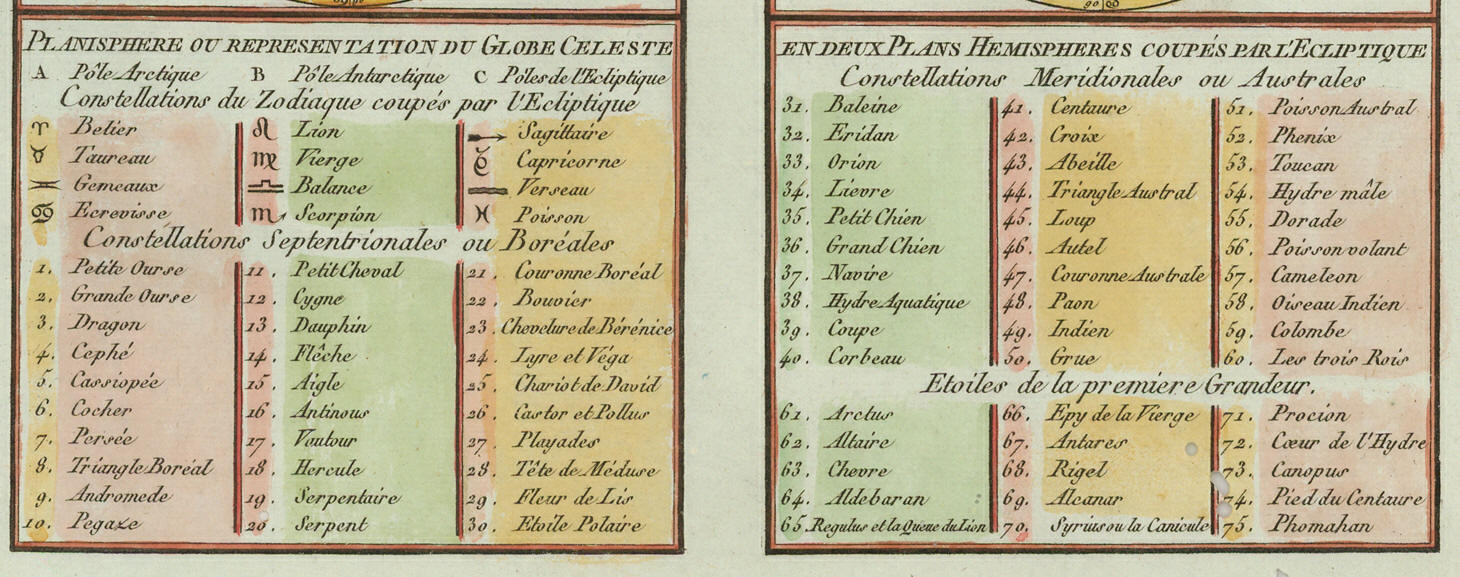 PLANISPHERE OU REPRESENTATION DU GLOBE CELESTE
A Pôle Arctique B Pôle Antarctique C Pôles de l'Ecliptique
Constellations du Zodiaque coupés par l'Ecliptique
♈ Belier ♌ Lion ♐ Sagittaire
♉ Taureau ♍ Vierge ♑ Capricorne
♊ Gemeaux ♎ Balance ♒ Verseau
♋ Ecrevisse ♏ Scorpion ♓ Poisson
Constellations Septentrionales ou Boréales
1. Petite Ourse 11. Petit Cheval 21. Couronne Boréal
2. Grande Ourse 12. Cygne 22. Bouvier
3. Dragon 13. Dauphin 23. Chevelure de Bérénice
4. Cephé 14. Flêche 24. Lyre et Véga
5. Cassiopée 15. Aigle 25. Chariot de David
6. Cocher 16. Antinous 26. Castor et Pollus
7. Persée 17. Vautour 27. Playades
8. Triangle Boréal 18. Hercule 28. Tête de Méduse
9. Andromede 19. Serpentaire 29. Fleur de Lis
10. Pegaze 20. Serpent 30. Etoile Polaire
EN DEUX PLANS HEMISPHERES COUPÉS PAR L'ECLIPTIQUE
Constellations Meridionales ou Australes
31. Baleine 41. Centaure 51. Poisson Austral
32. Eridan 42. Croix 52. Phenix
33. Orion 43. Abeille 53. Toucan
34. Lievre 44. Triangle Austral 54. Hydre mâle
35. Petit Chien 45. Loup 55. Dorade
36. Grand Chien 46. Autel 56. Poisson volant
37. Navire 47. Couronne Australe 57. Cameleon
38. Hydre Aquatique 48. Paon 58. Oiseau Indien
39. Coupe 49. Indien 59. Colombe
40. Corbeau 50. Grue 60. Les trois Rois
Etoiles de la premiere Grandeur.
61. Arctus 66. Epy de la Vierge 71. Procion
62. Altaire 67. Antares 72. Cœur de l'Hydre
63. Chevre 68. Rigel 73. Canopus
64. Aldebaran 69. Alcanar 74. Pied du Centaure
65. Regulus et la Queue du Lion 70. Syrius ou la Canicule 75. Phomahan